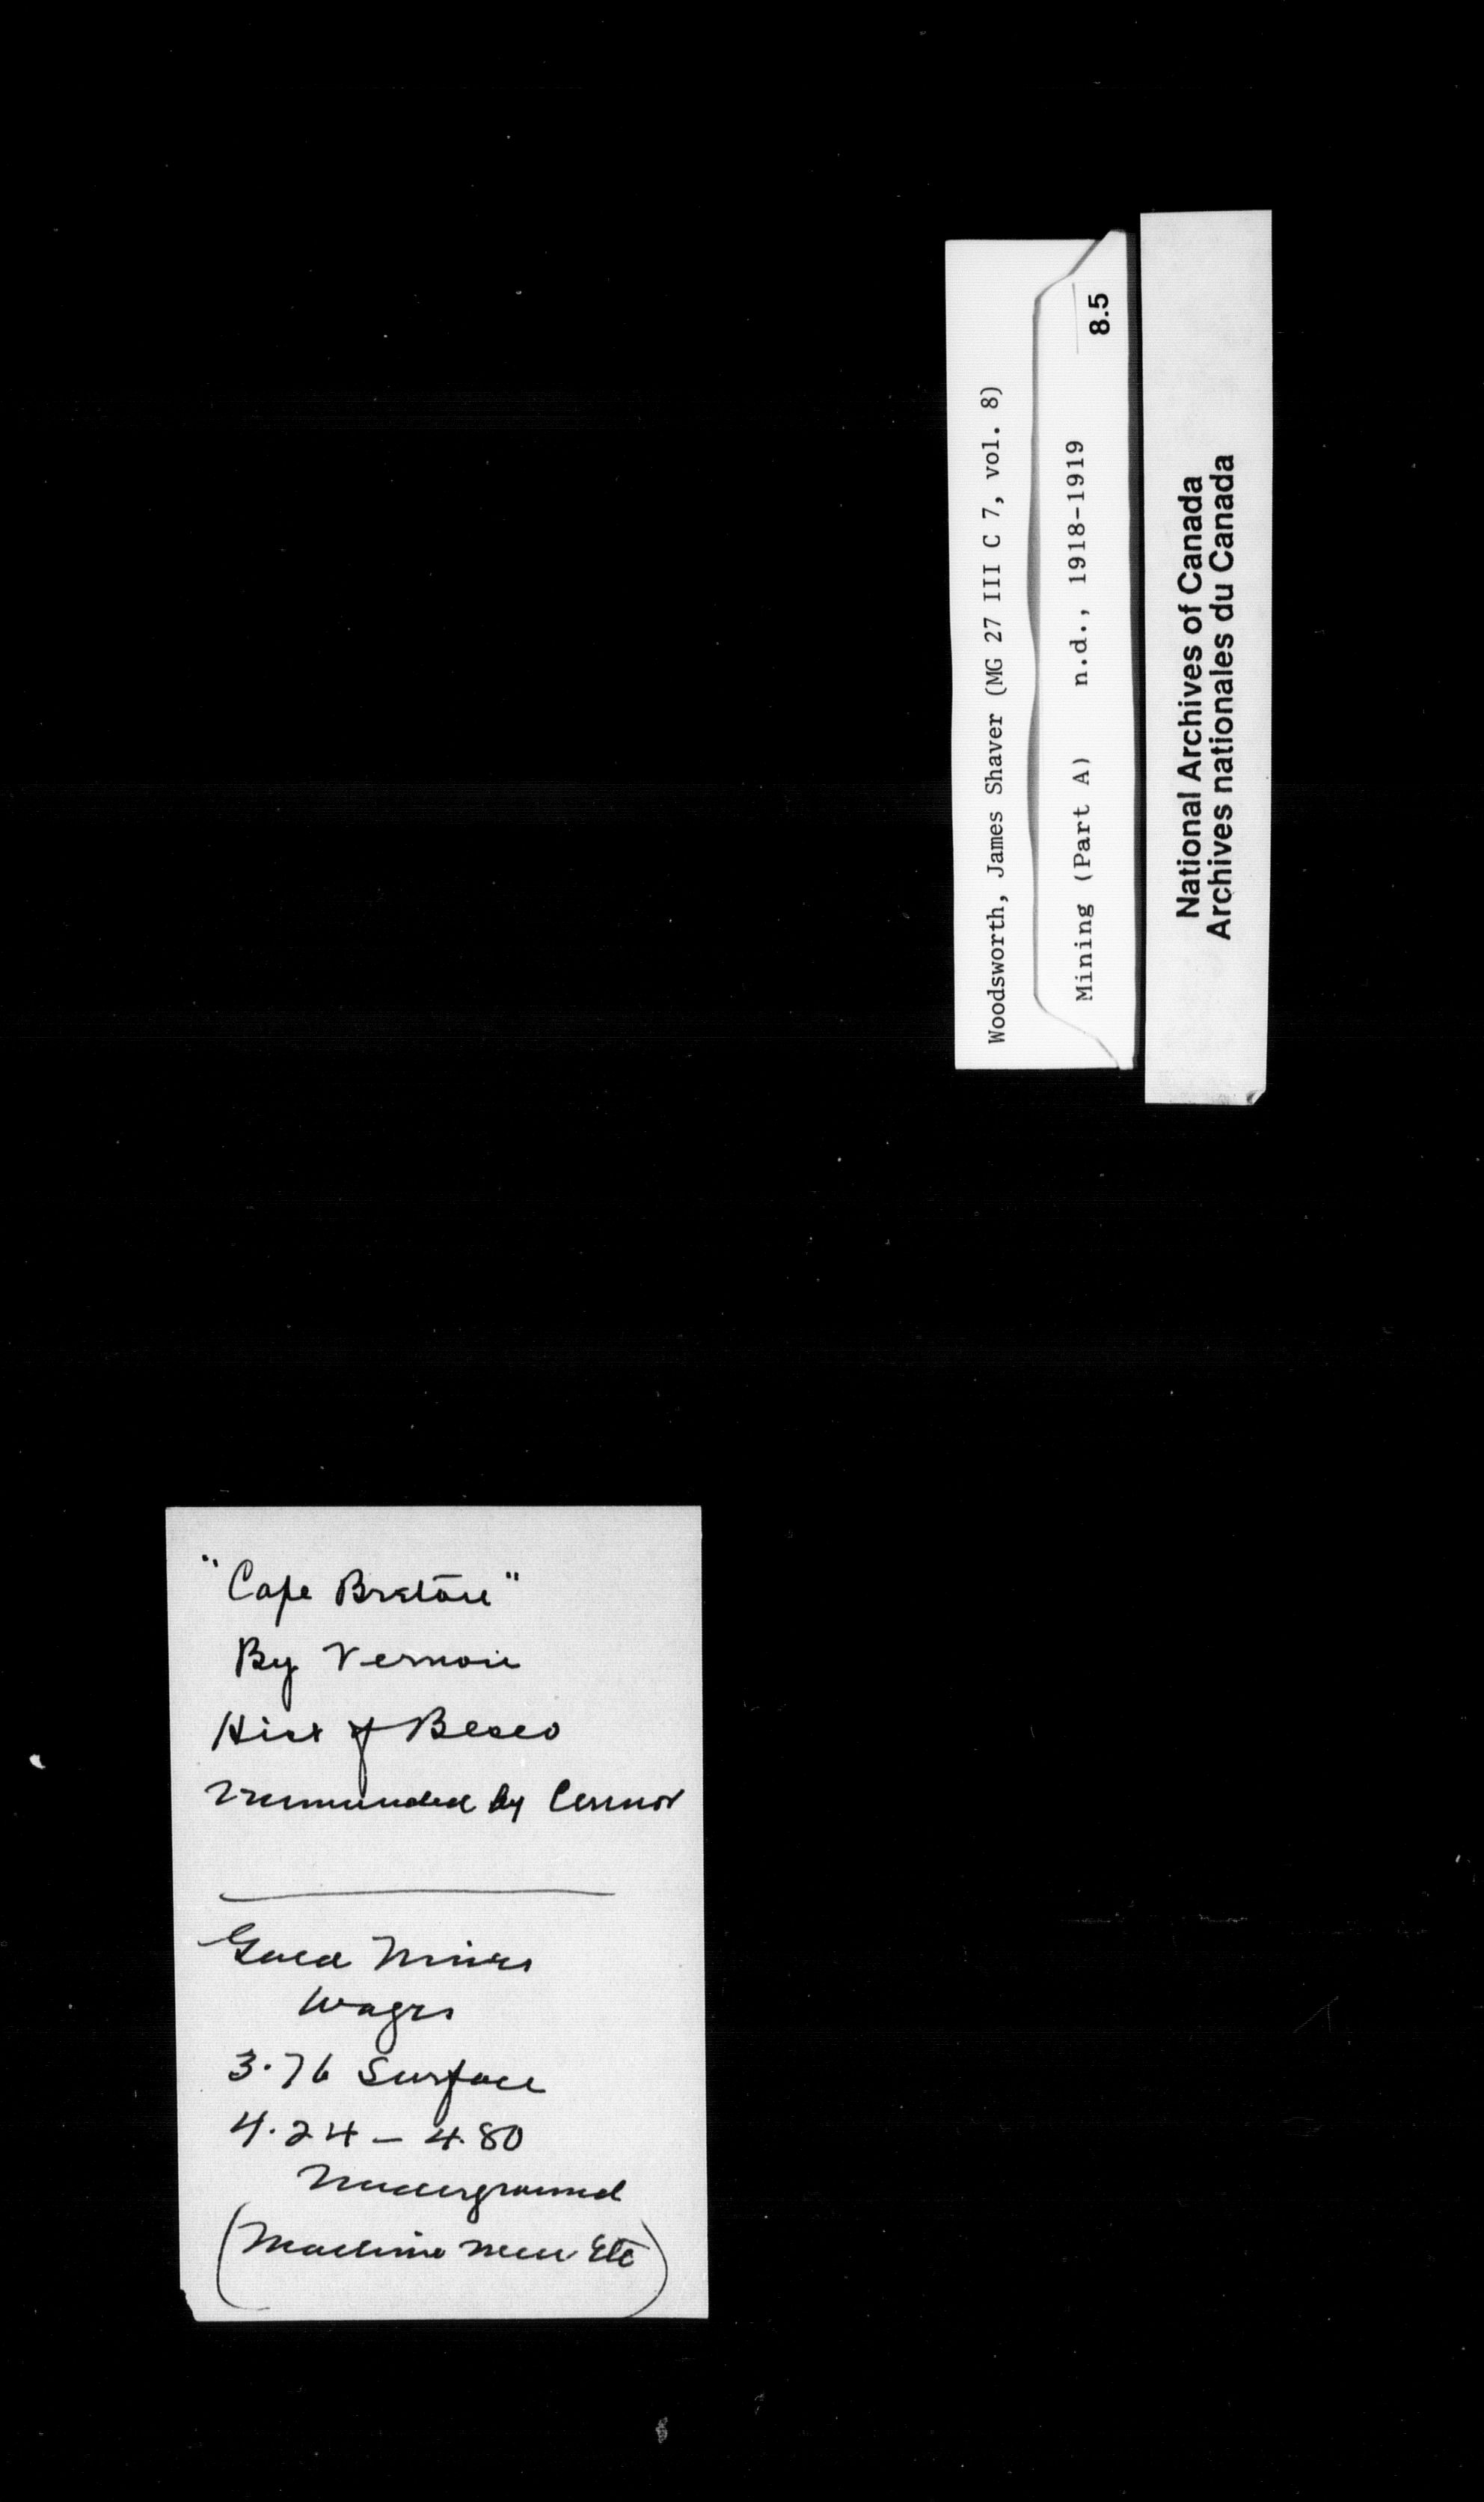 Woodsworth, James Shaver (MG 27 III C 7, vol. 8)
Mining (Part A) n.d., 1918-1919
8.5
National Archives of Canada
Archives nationales du Canada
"Cape Breton"
By Vernon
Hist of Besco
recommended by Connor
Gold Mines
Wages
3.76 Surface
4.24 – 4.80
Underground
(Machine men Etc)